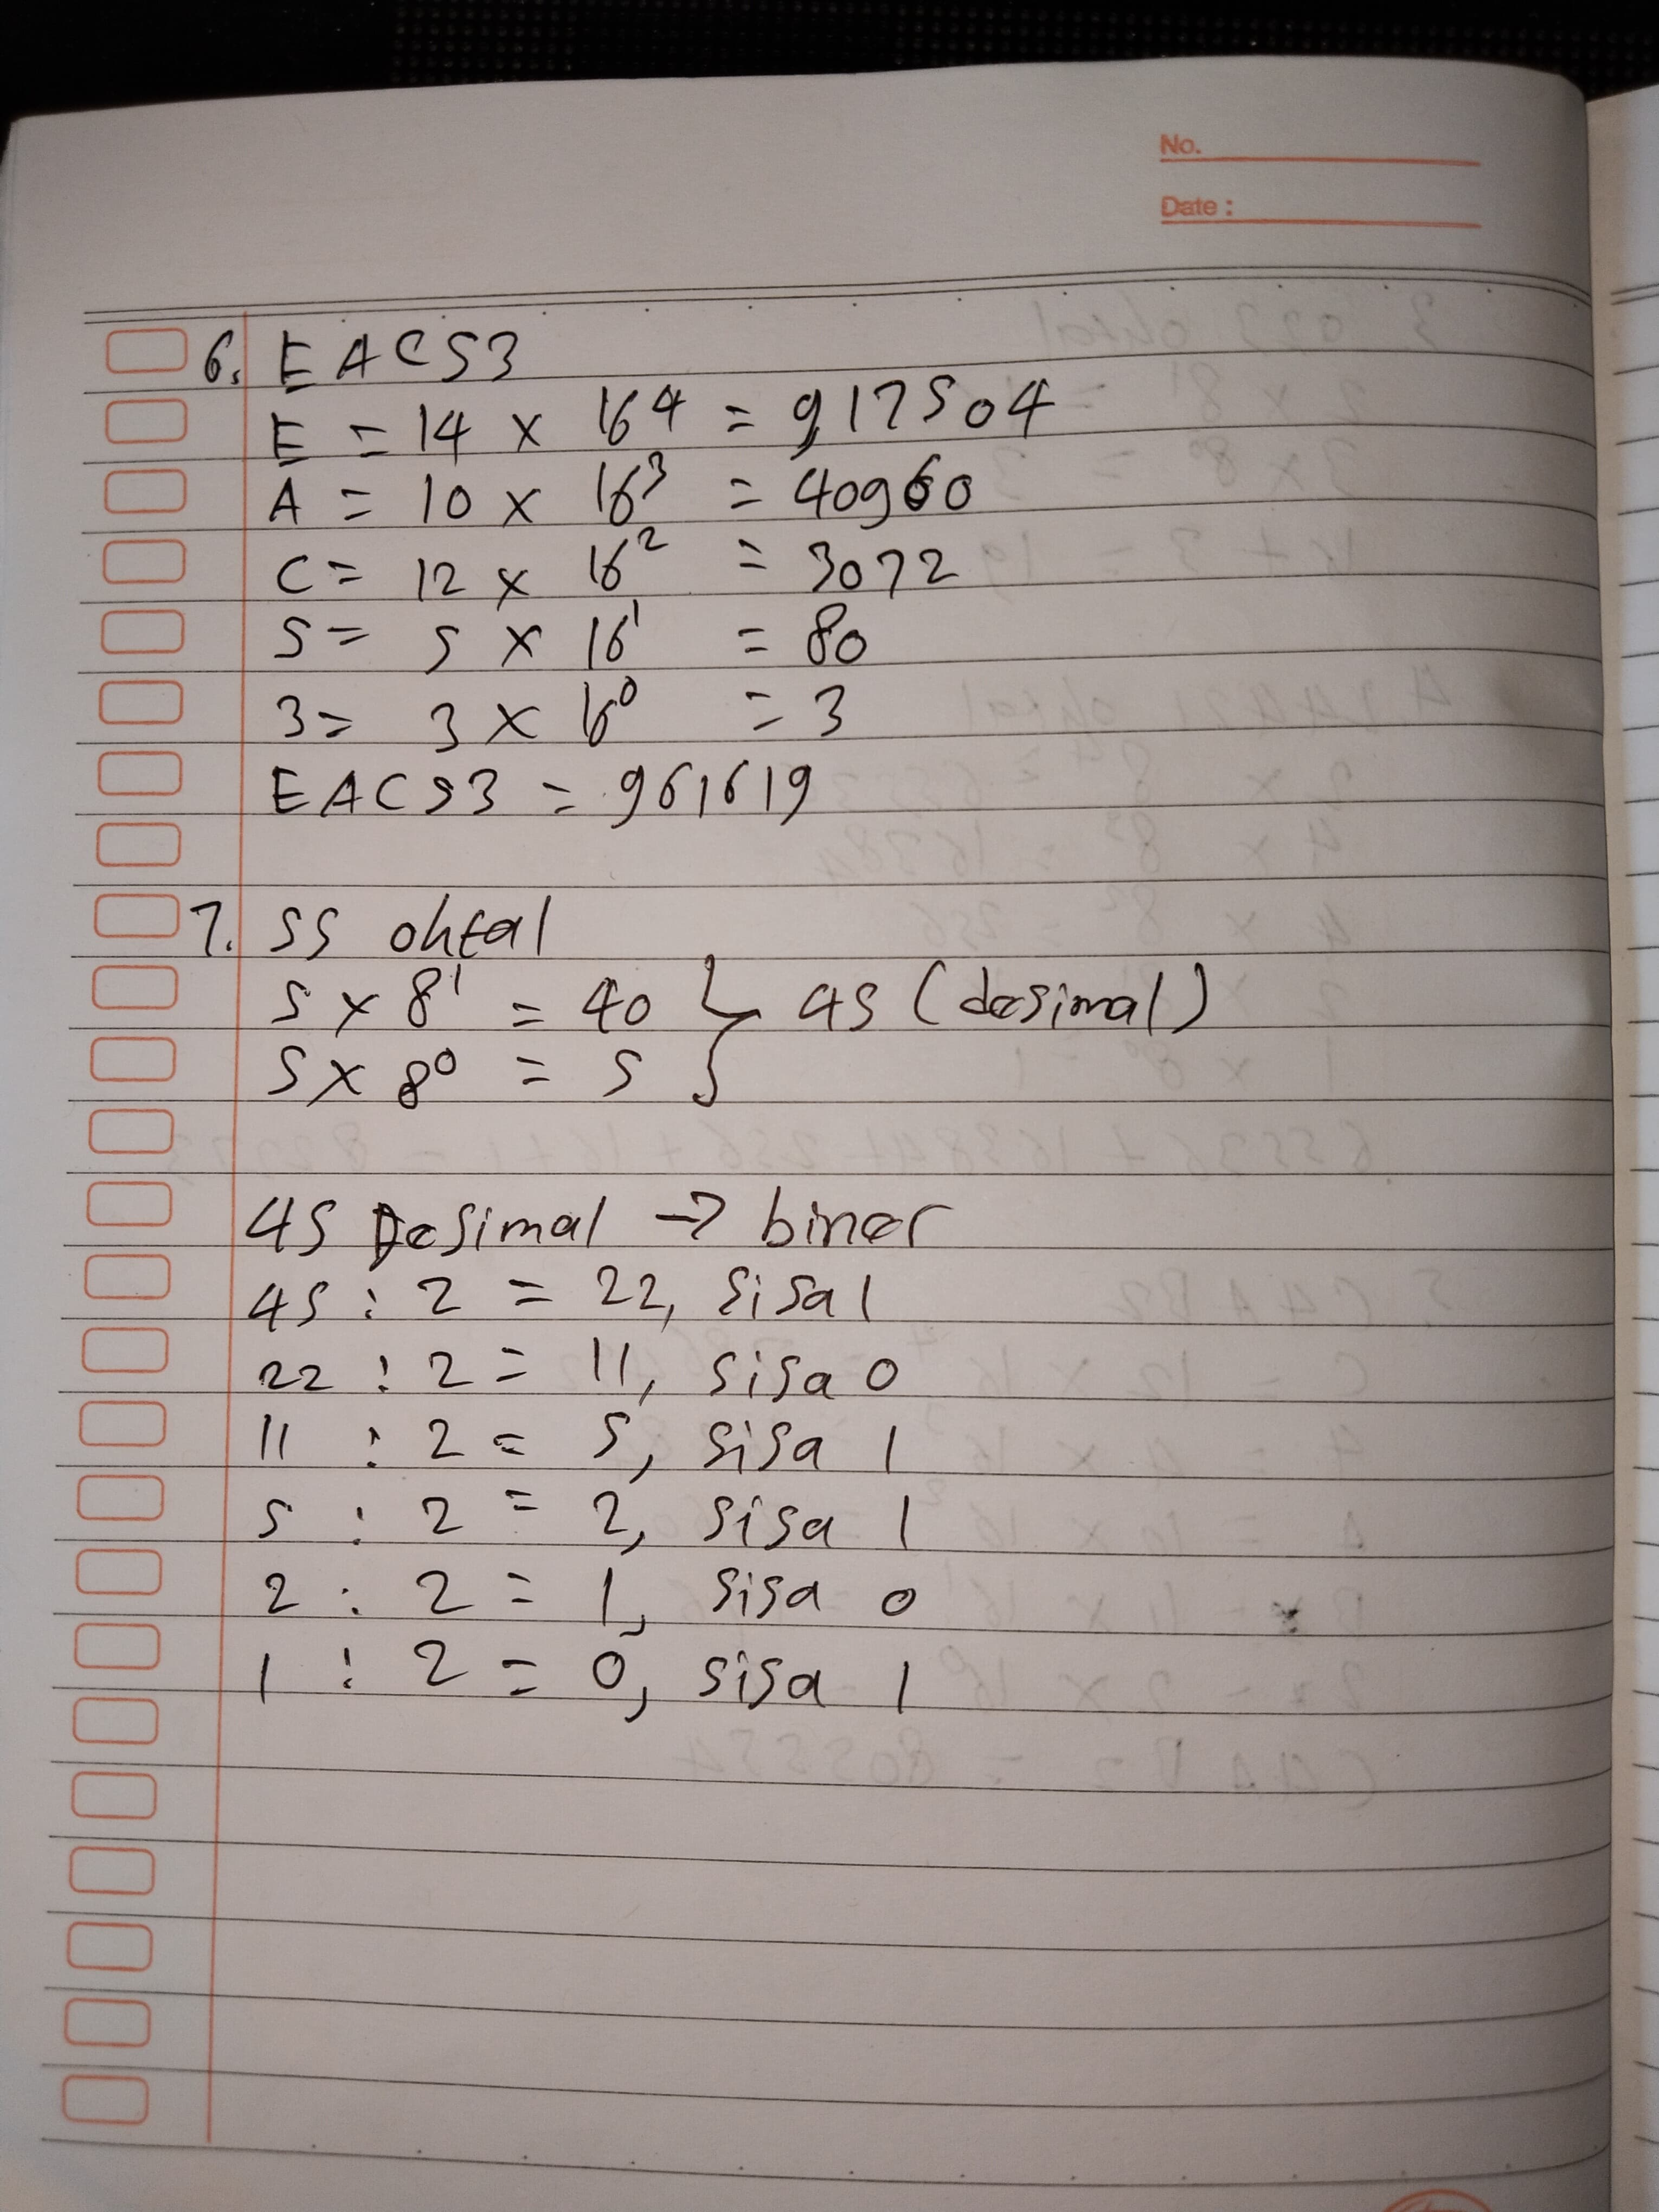 No.
Date :
6. EAC53
E = 14 x 16^4 = 917504
A = 10 x 16^3 = 40960
C = 12 x 16^2 = 3072
5 = 5 x 16^1 = 80
3 = 3 x 16^0 = 3
EAC53 = 961619
7. 55 oktal
5 x 8^1 = 40 } 45 (desimal)
5 x 8^0 = 5
45 Desimal → biner
45 : 2 = 22, sisa 1
22 : 2 = 11, sisa 0
11 : 2 = 5, sisa 1
5 : 2 = 2, sisa 1
2 : 2 = 1, sisa 0
1 : 2 = 0, sisa 1